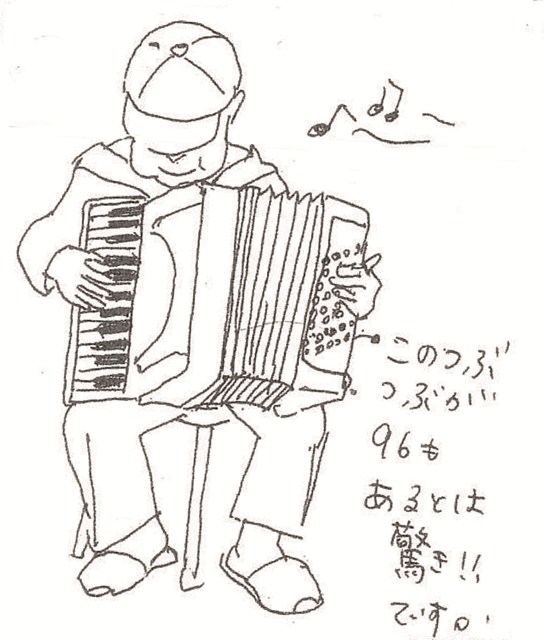 このつぶ
つぶが
96も
あるとは
驚き!!
ですね